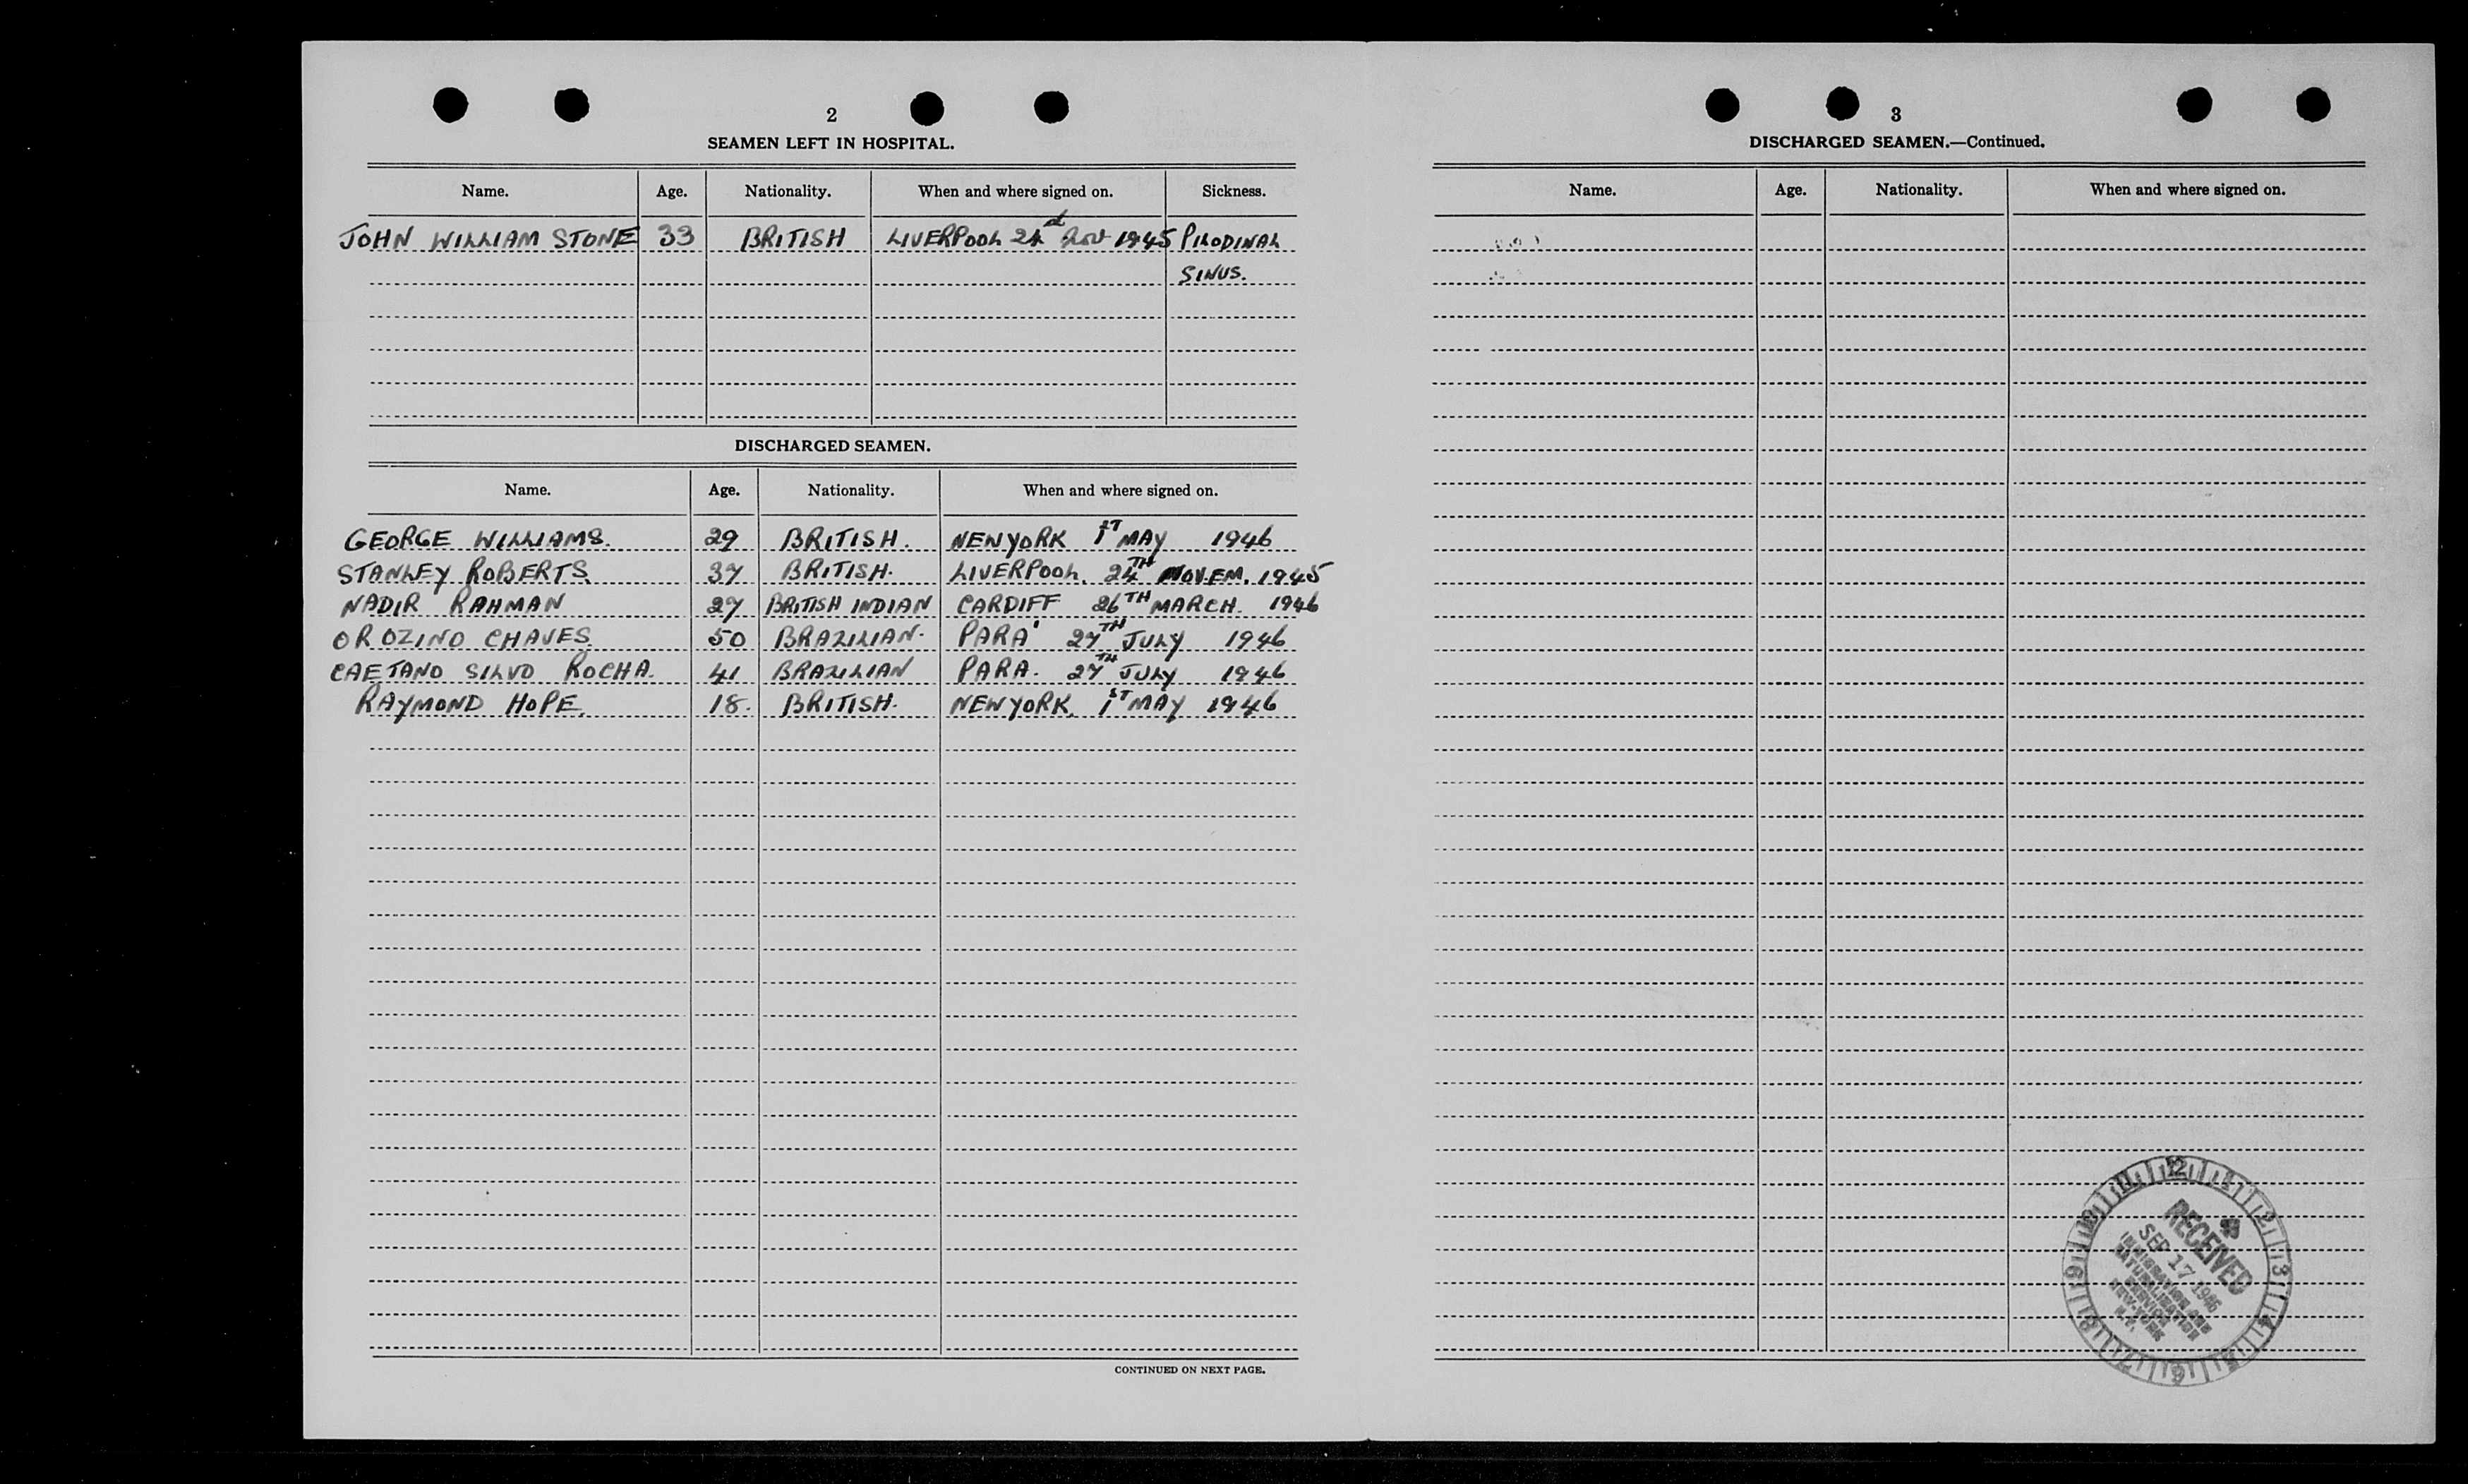 2
SEAMEN LEFT IN HOSPITAL.
Name. Age. Nationality. When and where signed on. Sickness.
JOHN WILLIAM STONE 33 BRITISH LIVERPOOL 24 Nov 1945 PILODINAL
SINUS.
DISCHARGED SEAMEN.
Name. Age. Nationality. When and where signed on.
GEORGE WILLIAMS. 29 BRITISH. NEW YORK 1ST MAY 1946
STANLEY ROBERTS. 37 BRITISH. LIVERPOOL. 24TH NOVEM. 1945
NADIR RAHMAN 27 BRITISH INDIAN CARDIFF 26TH MARCH. 1946
OROZINO CHAVES. 50 BRAZILIAN. PARA' 27TH JULY 1946
CAETANO SILVO ROCHA. 41 BRAZILIAN PARA. 27TH JULY 1946
RAYMOND HOPE. 18. BRITISH. NEW YORK. 1ST MAY 1946
CONTINUED ON NEXT PAGE.
3
DISCHARGED SEAMEN.—Continued.
Name. Age. Nationality. When and where signed on.
12 1 2 3 4 5 6 7 8 9 10 11
RECEIVED
SEP 17 1946
IMMIGRATION AND
NATURALIZATION
SERVICE
NEW-YORK
N.Y.